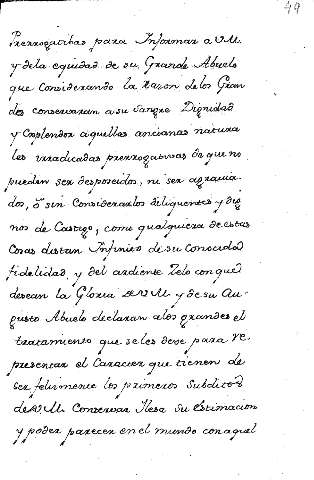 49
Prerrogatibas para Informar a V.M.
y dela equidad de su Grande Abuelo
que Considerando la Razon delos Gran
des conservaran a su Sangre Dignidad
y Explendor aquellas ancianas natura
les yrradicadas prerrogativas de que no
pueden ser desposeidos, ni ser agravia
dos, ô sin Considerarlos diliquentes y dig
nos de Castigo, como qualquiera de estas
Cosas distan Infinito de su Conocida
fidelidad, y del ardiente Zelo con que
desean la Gloria de V.M. y de su Au-
gusto Abuelo declaran alos grandes el
tratamiento que seles deve para re
presentar el Caracter que tienen de
ser felizmente los primeros Subditos
de V.M. Conservar Ilesa su estimacion
y poder parecer en el mundo con aquel